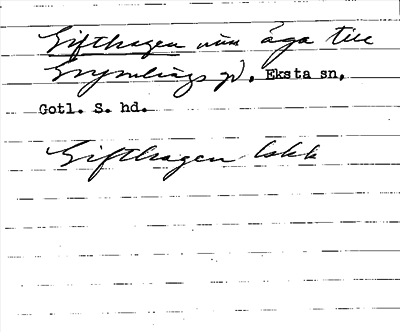 Gifthagen num äga till
Grymlings gd, Eksta sn,
Gotl. S. hd.
Gifthagen lokk